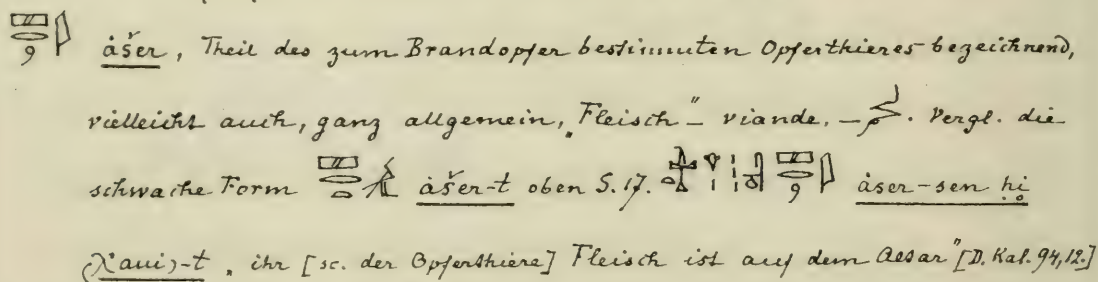 åšer, Theil des zum Brandopfer bestimmten Opferthieres bezeichnend,
vielleicht auch, ganz allgemein, „Fleisch" – viande. –. Vergl. die
schwache Form åšer-t oben S. 17. åser-sen ḥi
(χaui)-t „ihr [sc. der Opferthiere] Fleisch ist auf dem Aesar" [D. Kal. 94,12.]